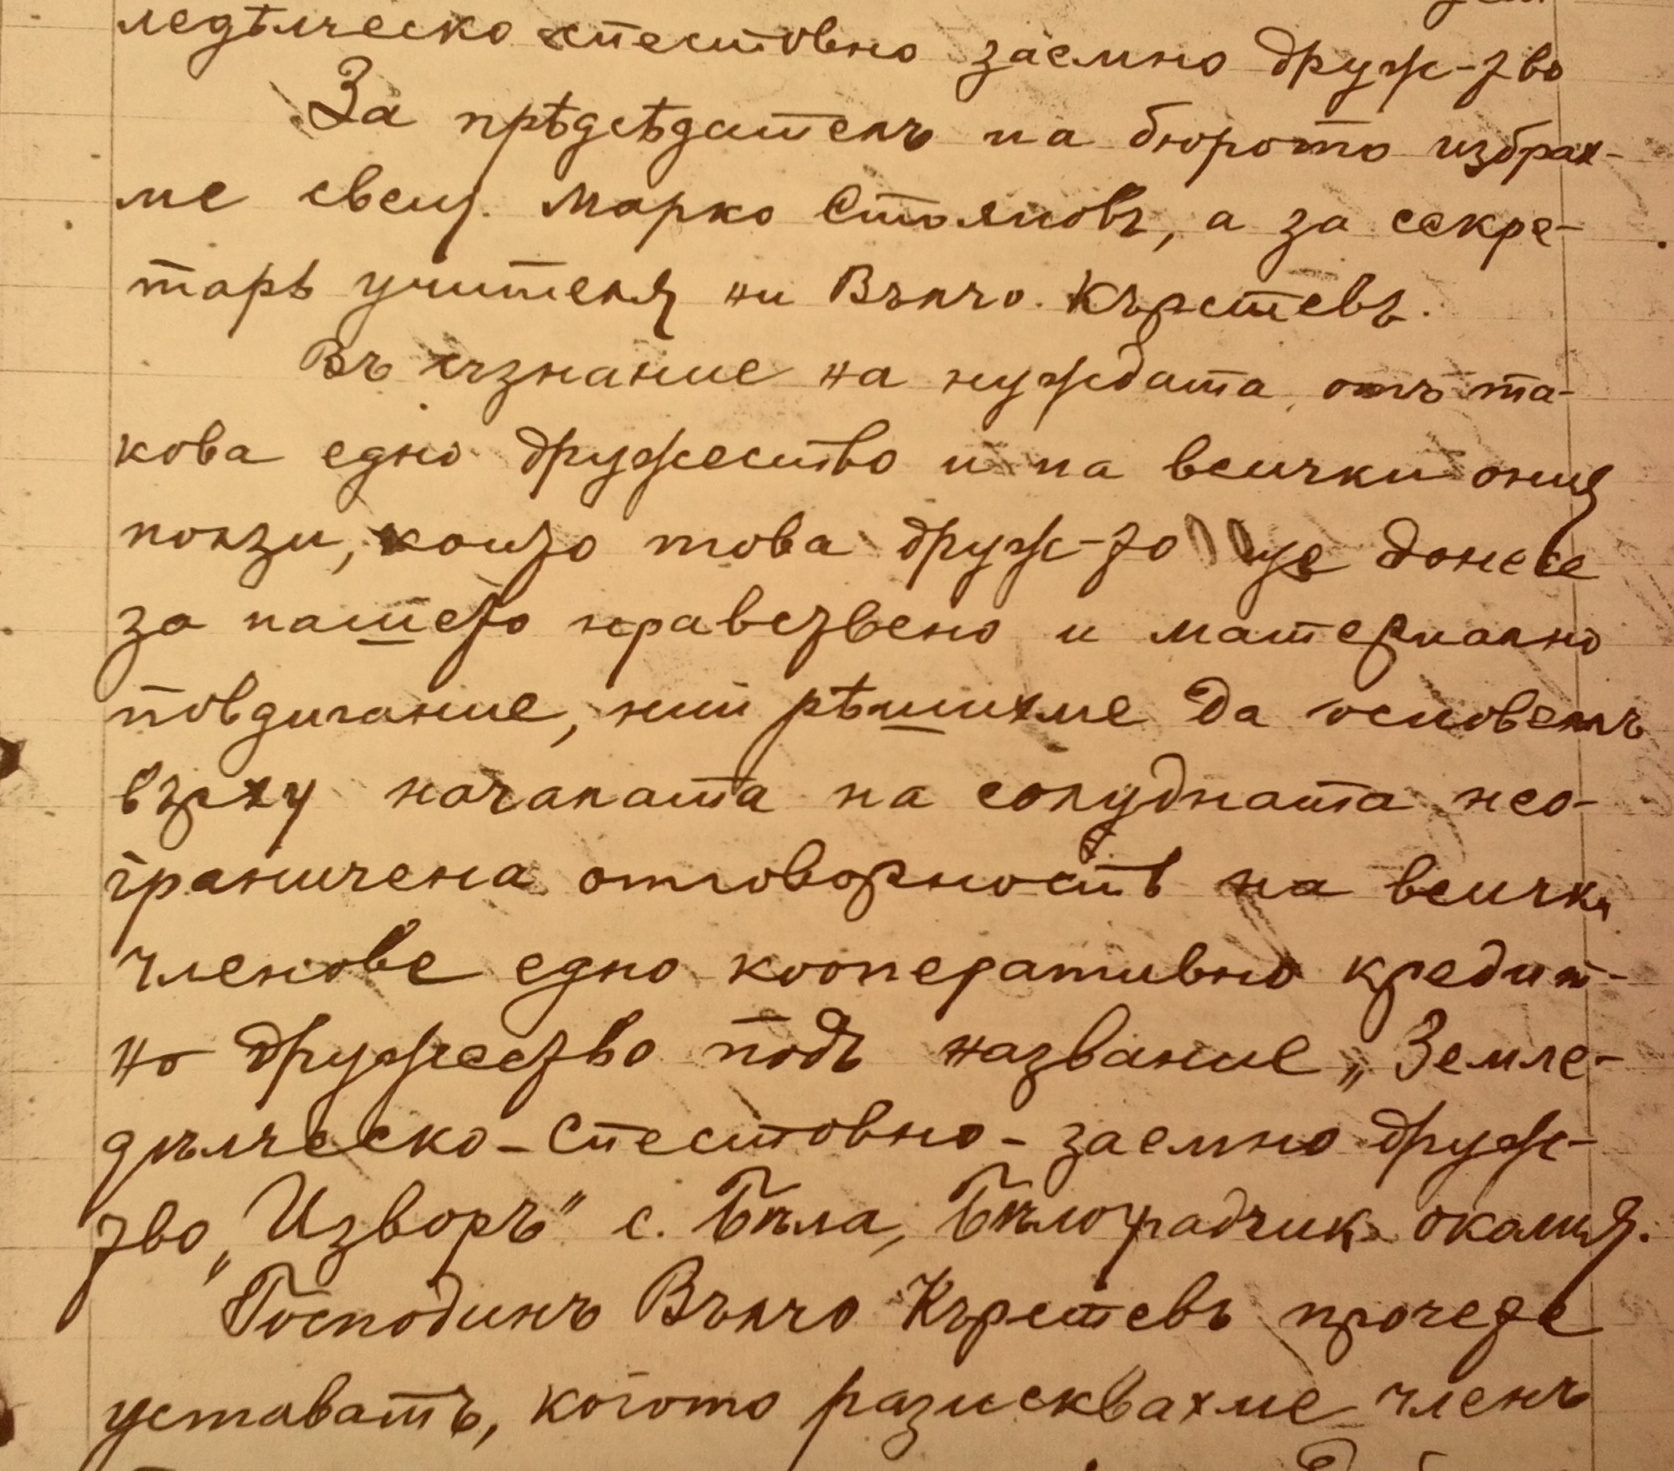 ледѣлческо спестовно заемно друж-тво
За прѣдсѣдатель на бюрото избрах-
ме свещ. Марко Стояновъ, а за секре-
таръ учителя ни Вълчо Кърстевъ.
Въ съзнание на нуждата отъ та-
кова едно дружество и на всички ония
ползи, които това друж-то ще донесе
за нашето нравствено и материално
повдигание, ний рѣшихме да основемъ
върху началата на солидната нео-
граничена отговорность на всички
членове едно кооперативно кредит-
но дружество подъ название „Земле-
дѣлческо-спестовно-заемно друж-
тво „Изворъ" с. Бѣла, Бѣлоградчик. околия.
Господинъ Вълчо Кърстевъ прочете
уставатъ, когото разисквахме членъ